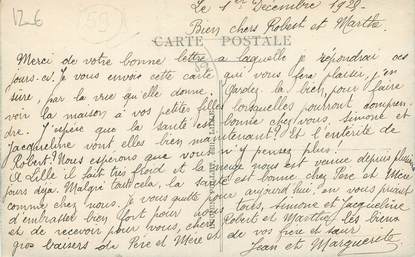 12€
59
Le 1er Décembre 1928.
Bien chers Robert et Marthe
CARTE POSTALE
Merci de votre bonne lettre à laquelle je répondrai ces
jours-ci. Je vous envoie cette carte qui vous fera plaisir, j'en
suis sûre, par la vue qu'elle donne. Gardez la bien, pour faire
voir la maison à vos petites filles lorsqu'elles pourront
dre. J'espère que la santé est bonne chez vous. Simone et
Jacqueline vont elles bien maintenant? Et l'entérite de
Robert? Nous espérons que vous n'y pensez plus!
A Lille il fait très froid et la neige nous est venue depuis
jours déjà. Malgré tout cela, la santé est bonne chez Père et Mère
comme chez nous. Je vous quitte pour aujourd'hui en vous priant
d'embrasser bien fort pour nous tous, Simone et Jacqueline
et de recevoir pour vous, chers Robert et Marthe, les bons
gros baisers de Père et Mère et de vos frère et sœur
Jean et Marguerite.